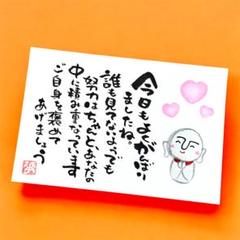 今日もよくがんばり
ましたね。
誰も見てないようでも
努力はちゃんとあなたの
中に積み重なっています
ご自身を褒めて
あげましょう